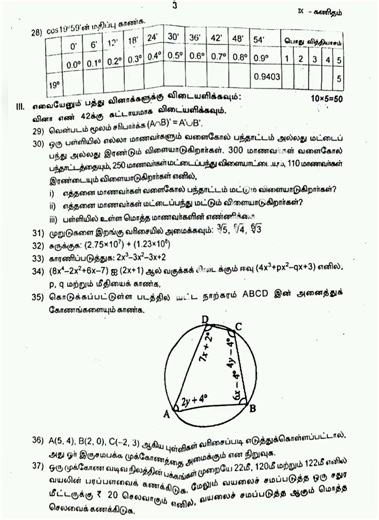 3
IX - கணிதம்
28) cos19°59'ன் மதிப்பு காண்க.
0' 6' 12' 18' 24' 30' 36' 42' 48' 54' பொது வித்தியாசம்
0.0° 0.1° 0.2° 0.3° 0.4° 0.5° 0.6° 0.7° 0.8° 0.9° 1 2 3 4 5
19° 0.9403 5
III. எவையேனும் பத்து வினாக்களுக்கு விடையளிக்கவும்: 10×5=50
வினா எண் 42க்கு கட்டாயமாக விடையளிக்கவும்.
29) வென்படம் மூலம் சரிபார்க்க (A∩B)' = A'∪B'.
30) ஒரு பள்ளியில் எல்லா மாணவர்களும் வளைகோல் பந்தாட்டம் அல்லது மட்டைப்
பந்து அல்லது இரண்டும் விளையாடுகிறார்கள். 300 மாணவர்கள் வளைகோல்
பந்தாட்டத்தையும், 250 மாணவர்கள் மட்டைப்பந்து விளையாட்டையும், 110 மாணவர்கள்
இரண்டையும் விளையாடுகிறார்கள் எனில்,
i) எத்தனை மாணவர்கள் வளைகோல் பந்தாட்டம் மட்டும் விளையாடுகிறார்கள்?
ii) எத்தனை மாணவர்கள் மட்டைப்பந்து மட்டும் விளையாடுகிறார்கள்?
iii) பள்ளியில் உள்ள மொத்த மாணவர்களின் எண்ணிக்கை
31) முறுடுகளை இறங்கு வரிசையில் அமைக்கவும்:
32) சுருக்குக: (2.75×10⁷) + (1.23×10⁸)
33) காரணிப்படுத்துக: 2x³-3x²-3x+2
34) (8x⁴-2x²+6x-7) ஐ (2x+1) ஆல் வகுக்கக் கிடைக்கும் ஈவு (4x³+px²-qx+3) எனில்,
p, q மற்றும் மீதியைக் காண்க.
35) கொடுக்கப்பட்டுள்ள படத்தில் வட்ட நாற்கரம் ABCD இன் அனைத்துக்
கோணங்களையும் காண்க.
D
C
7x + 2°
4y - 4°
6x - 4°
2y + 4°
A
B
36) A(5, 4), B(2, 0), C(-2, 3) ஆகிய புள்ளிகள் வரிசைப்படி எடுத்துக்கொள்ளப்பட்டால்,
அது ஓர் இருசமபக்க முக்கோணத்தை அமைக்கும் என நிறுவுக.
37) ஒரு முக்கோண வடிவ நிலத்தின் பக்கங்கள் முறையே 22மீ, 120மீ மற்றும் 122மீ எனில்
வயலின் பரப்பளவைக் கணக்கிடுக. மேலும் வயலைச் சமப்படுத்த ஒரு சதுர
மீட்டருக்கு ₹ 20 செலவாகும் எனில், வயலைச் சமப்படுத்த ஆகும் மொத்த
செலவைக் கணக்கிடுக.